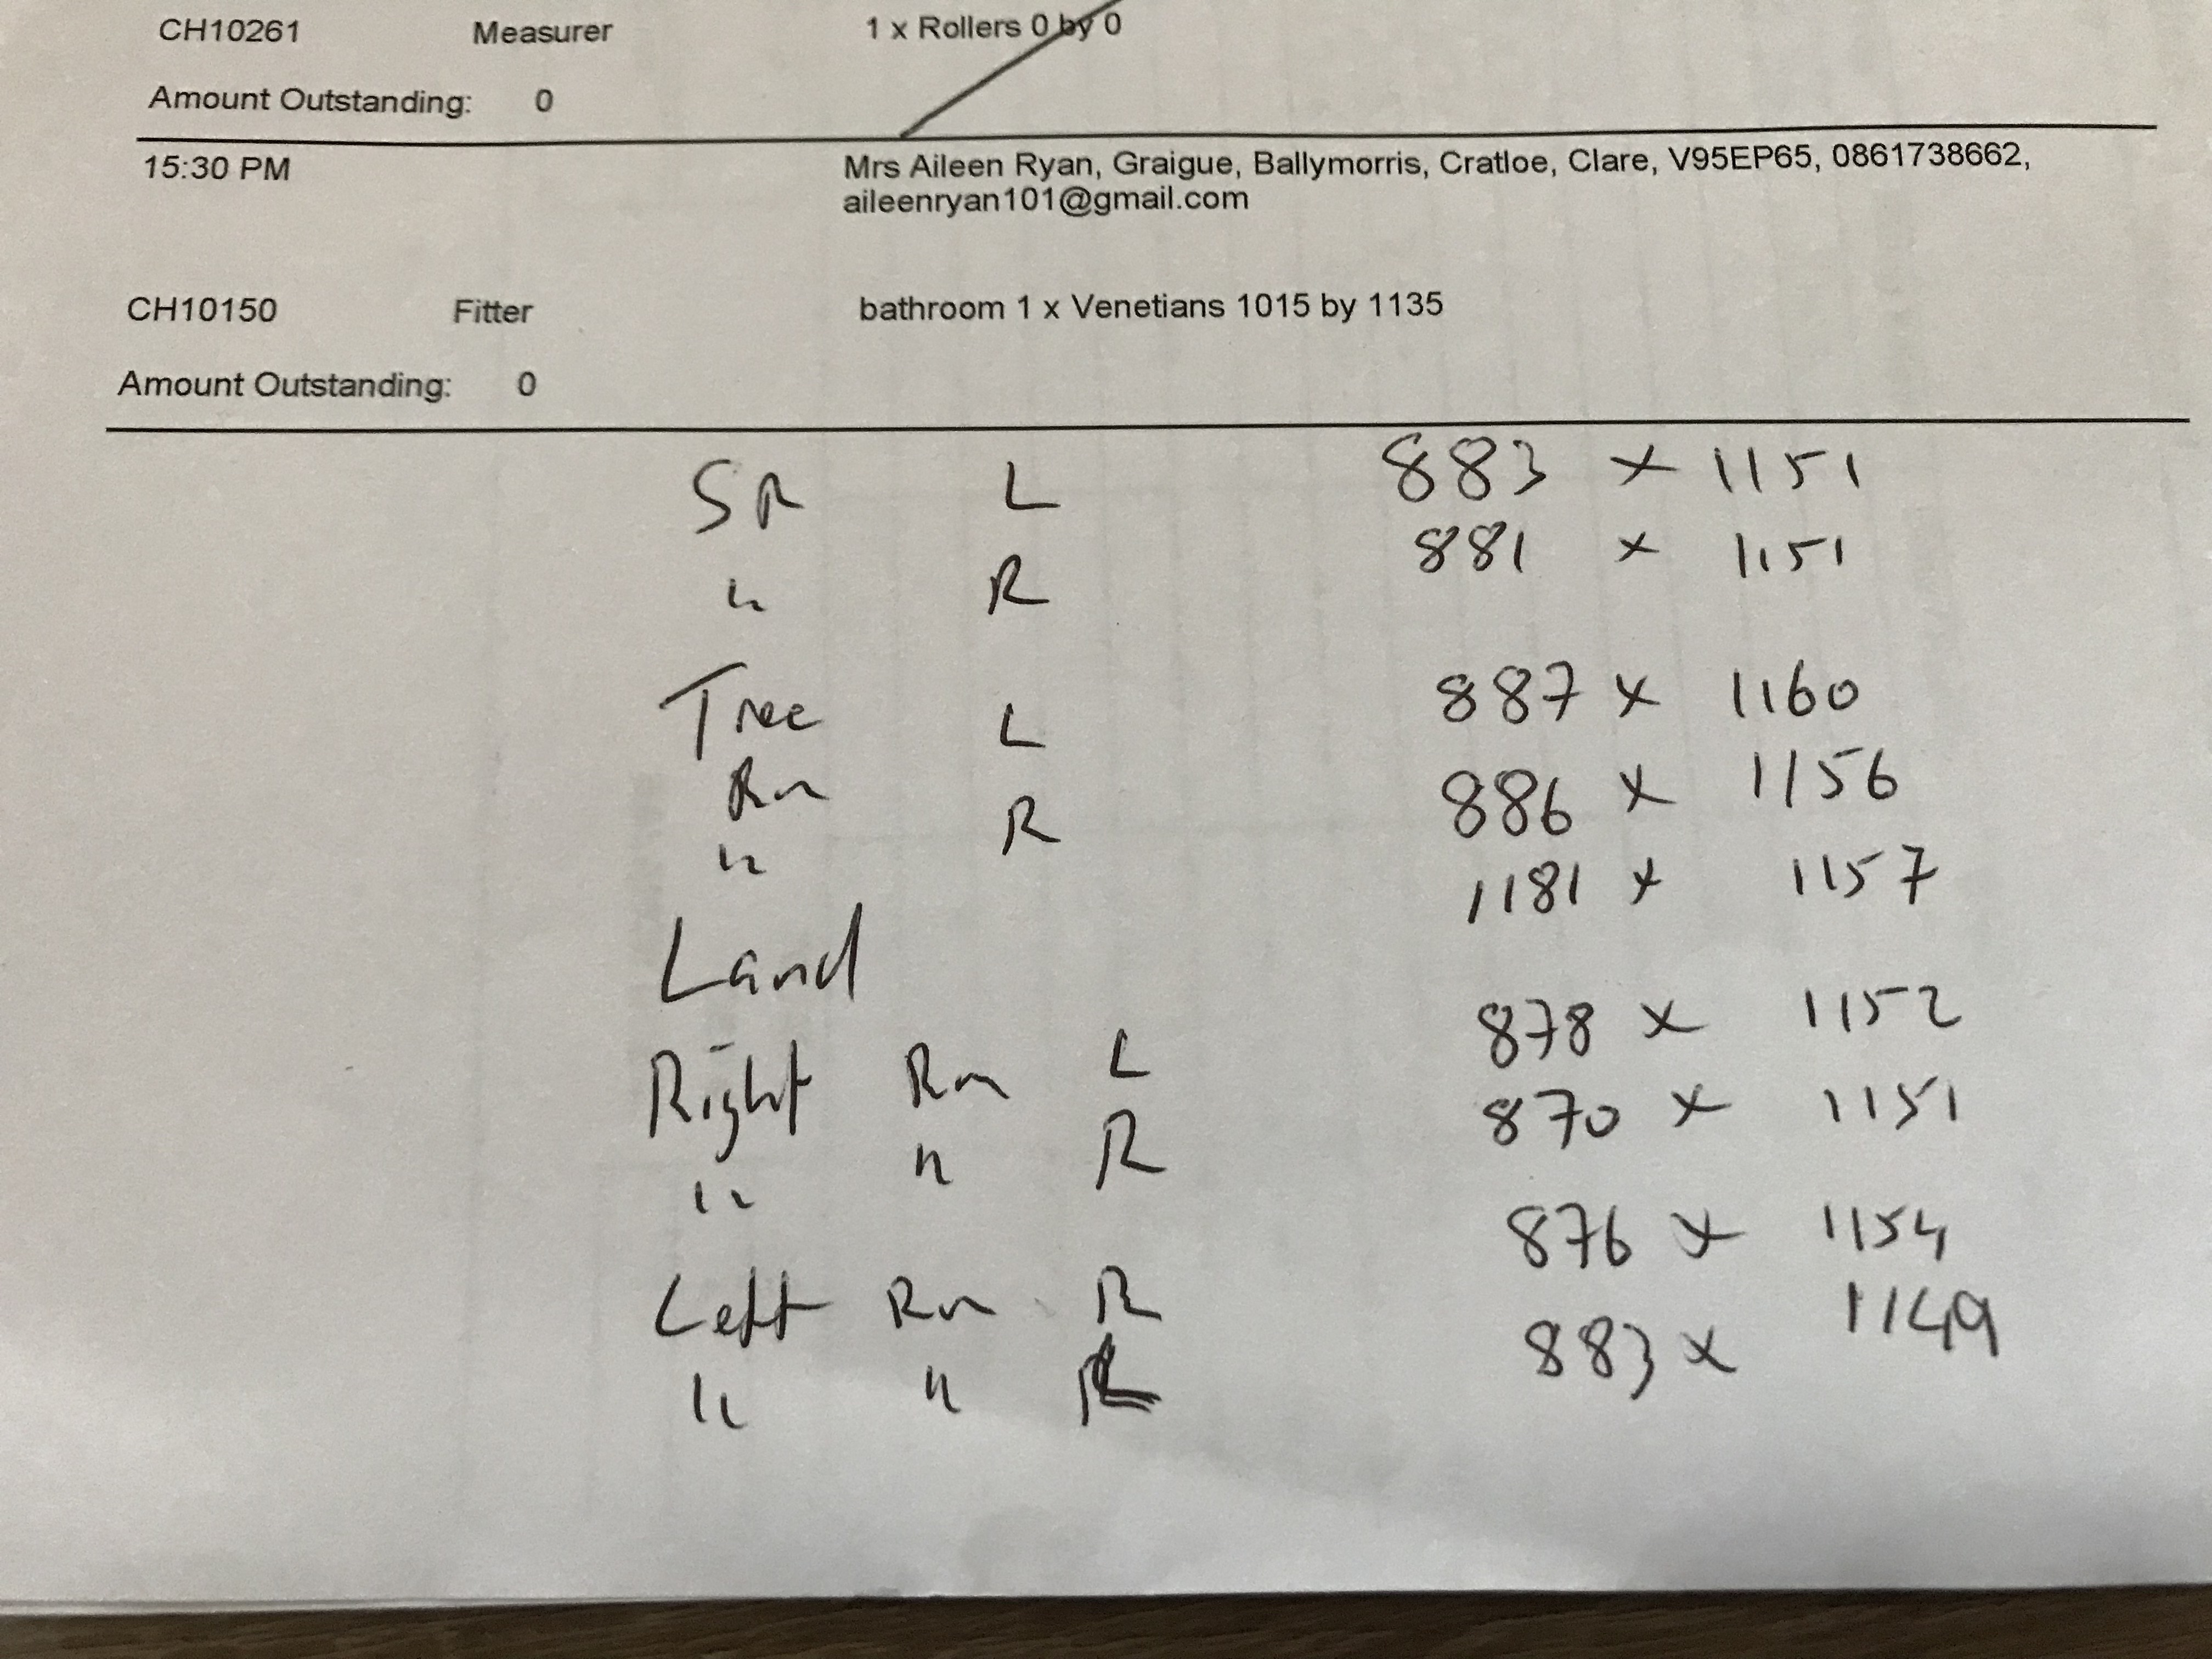 CH10261 Measurer 1 x Rollers 0 by 0
Amount Outstanding: 0
15:30 PM Mrs Aileen Ryan, Graigue, Ballymorris, Cratloe, Clare, V95EP65, 0861738662,
aileenryan101@gmail.com
CH10150 Fitter bathroom 1 x Venetians 1015 by 1135
Amount Outstanding: 0
SR L 883 x 1151
" R 881 x 1151
Tree L 887 x 1160
Rm
" R 886 x 1156
Land 1181 x 1157
Right Rm L 878 x 1152
" " R 870 x 1151
Left Rm R 876 x 1154
" " L 883 x 1149